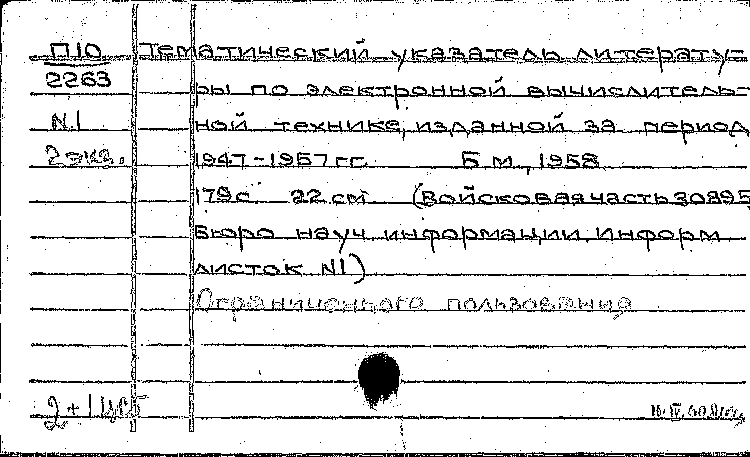 П10 Тематический указатель литерату-
2263 ры по электронной вычислитель-
N.1 ной технике, изданной за период
2 экз. 1947-1957 гг. Б.м., 1958
179с. 22 см (Войсковая часть 30895
Бюро науч информации. Информ
листок N1)
Ограниченного пользования
2+1